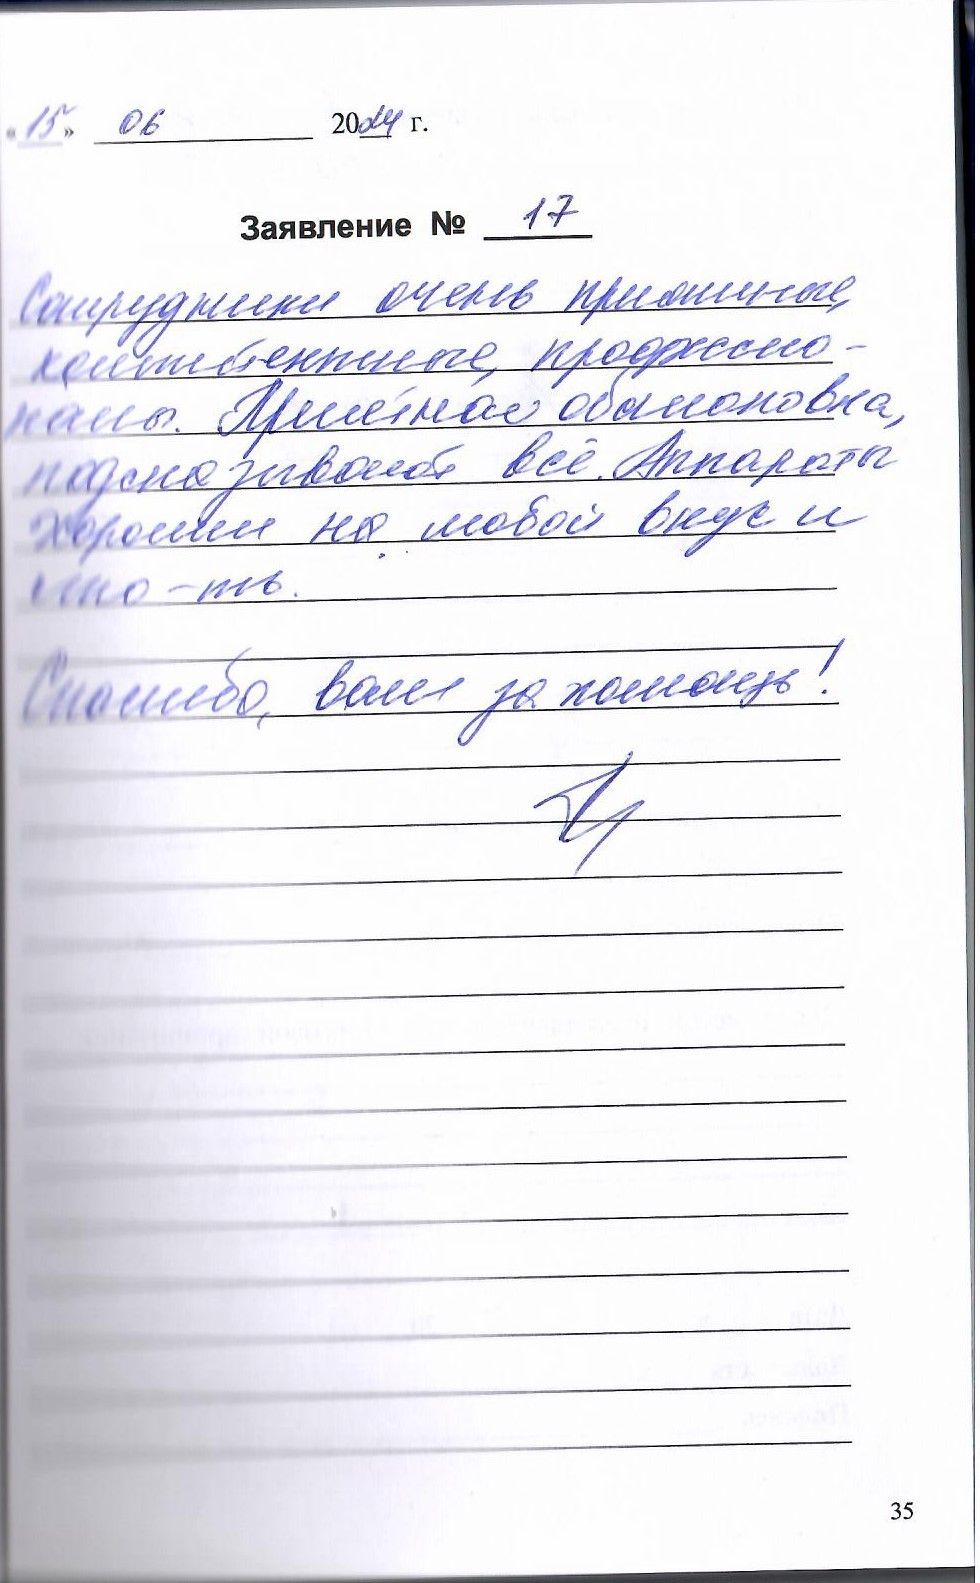 «15» 06 2024 г.
Заявление № 17
Сотрудники очень приятные,
компетентные, профессио-
налы. Приятная обстановка,
подсказывают всё. Аппараты
хорошие на любой вкус и
-ть.
Спасибо, вам за помощь!
35